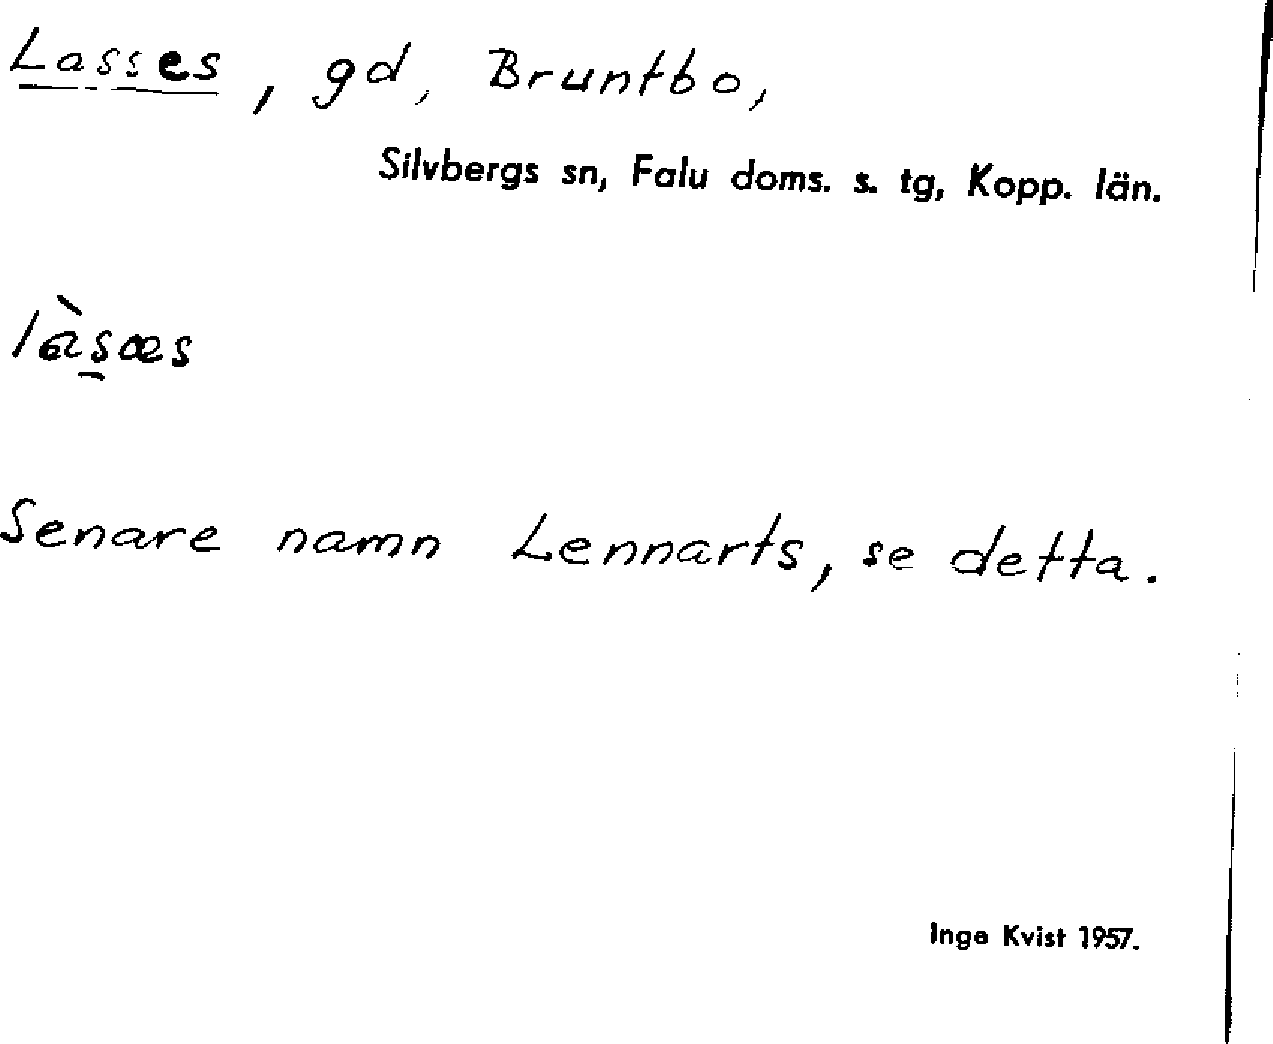 Lasses, gd, Bruntbo,
Silvbergs sn, Falu doms. s. tg, Kopp. län.
làs̠æs
Senare namn Lennarts, se detta.
Inga Kvist 1957.